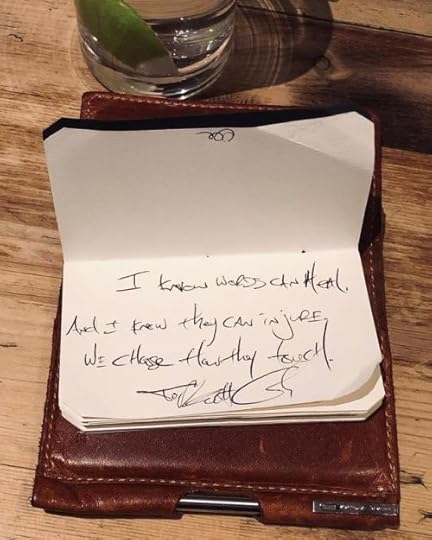 I know words can Heal.
And I know they can injure
We choose How they touch.